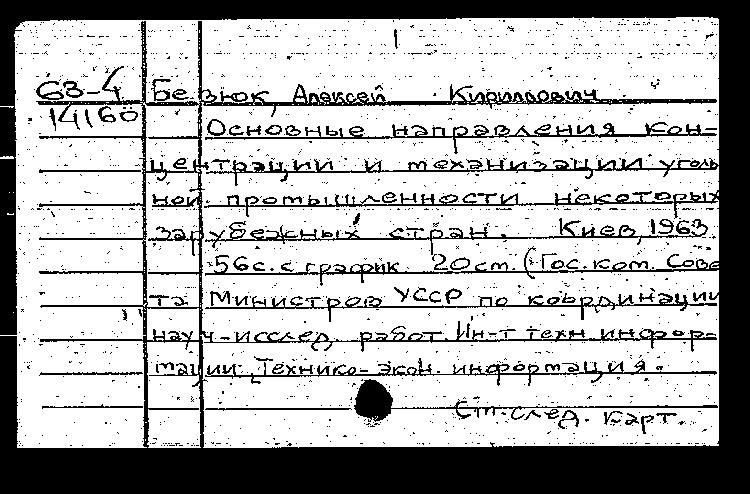 63-4 Безюк, Алексей Кириллович
14160
Основные направления кон-
центрации и механизации уголь
ной промышленности некоторых
зарубежных стран. Киев, 1963.
56с. с график. 20см. (Гос. ком. Сове
та Министров УССР по координации
науч-исслед. работ. Ин-т техн. инфор-
мации. Технико-экон. информация.
См. след. карт.